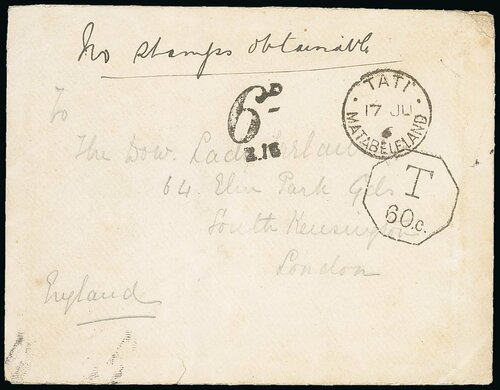 No stamps obtainable
6D
2.16
TATI
17 JU
6
MATABELELAND
T
60.c.
To
The Dow. Lady
64. Elm Park Gds
South Kensington
London
England